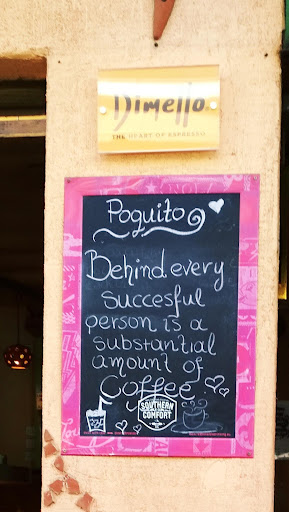 Dimello
THE HEART OF ESPRESSO
Poquito
Behind every
succesful
person is a
substantial
amount of
coffee
SOUTHERN
COMFORT